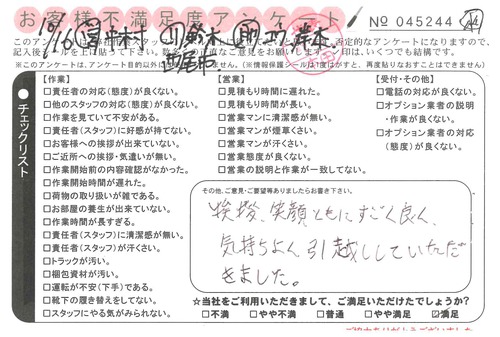 お客様不満足度アンケート
№ 045244
否定的なアンケートになりますので、
記入後シールを上に貼って下さい。
※このアンケートは、アンケート目的以外に
(※情報保護シールは1度はがすと、再度貼りなおすことができません。)
チェックリスト
【作業】
□責任者の対応(態度)が良くない。
□他のスタッフの対応(態度)が良くない。
□作業を見ていて不安がある。
□責任者(スタッフ)に好感が持てない。
□お客様への挨拶が出来ていない。
□ご近所への挨拶・気遣いが無い。
□作業開始前の内容確認がなかった。
□作業開始時間が遅れた。
□荷物の取り扱いが雑である。
□お部屋の養生が出来ていない。
□作業時間が長すぎる。
□責任者(スタッフ)に清潔感が無い。
□責任者(スタッフ)が汗くさい。
□トラックが汚い。
□梱包資材が汚い。
□運転が不安(下手)である。
□靴下の履き替えをしてない。
□スタッフにやる気がみられない。
【営業】
□見積もり時間に遅れた。
□見積もり時間が長い。
□営業マンに清潔感が無い。
□営業マンが煙草くさい。
□営業マンが汗くさい。
□営業態度が良くない。
□営業の説明と作業が一致してない。
【受付・その他】
□電話の対応が良くない。
□オプション業者の説明
・作業が良くない。
□オプション業者の対応
(態度)が良くない。
その他、ご意見・ご要望等ありましたらお書き下さい。
挨拶、笑顔ともにすごく良く、
気持ちよく引越ししていただ
きました。
☆当社をご利用いただきまして、ご満足いただけたでしょうか?
□不満 □やや不満 □普通 □やや満足 ☑満足